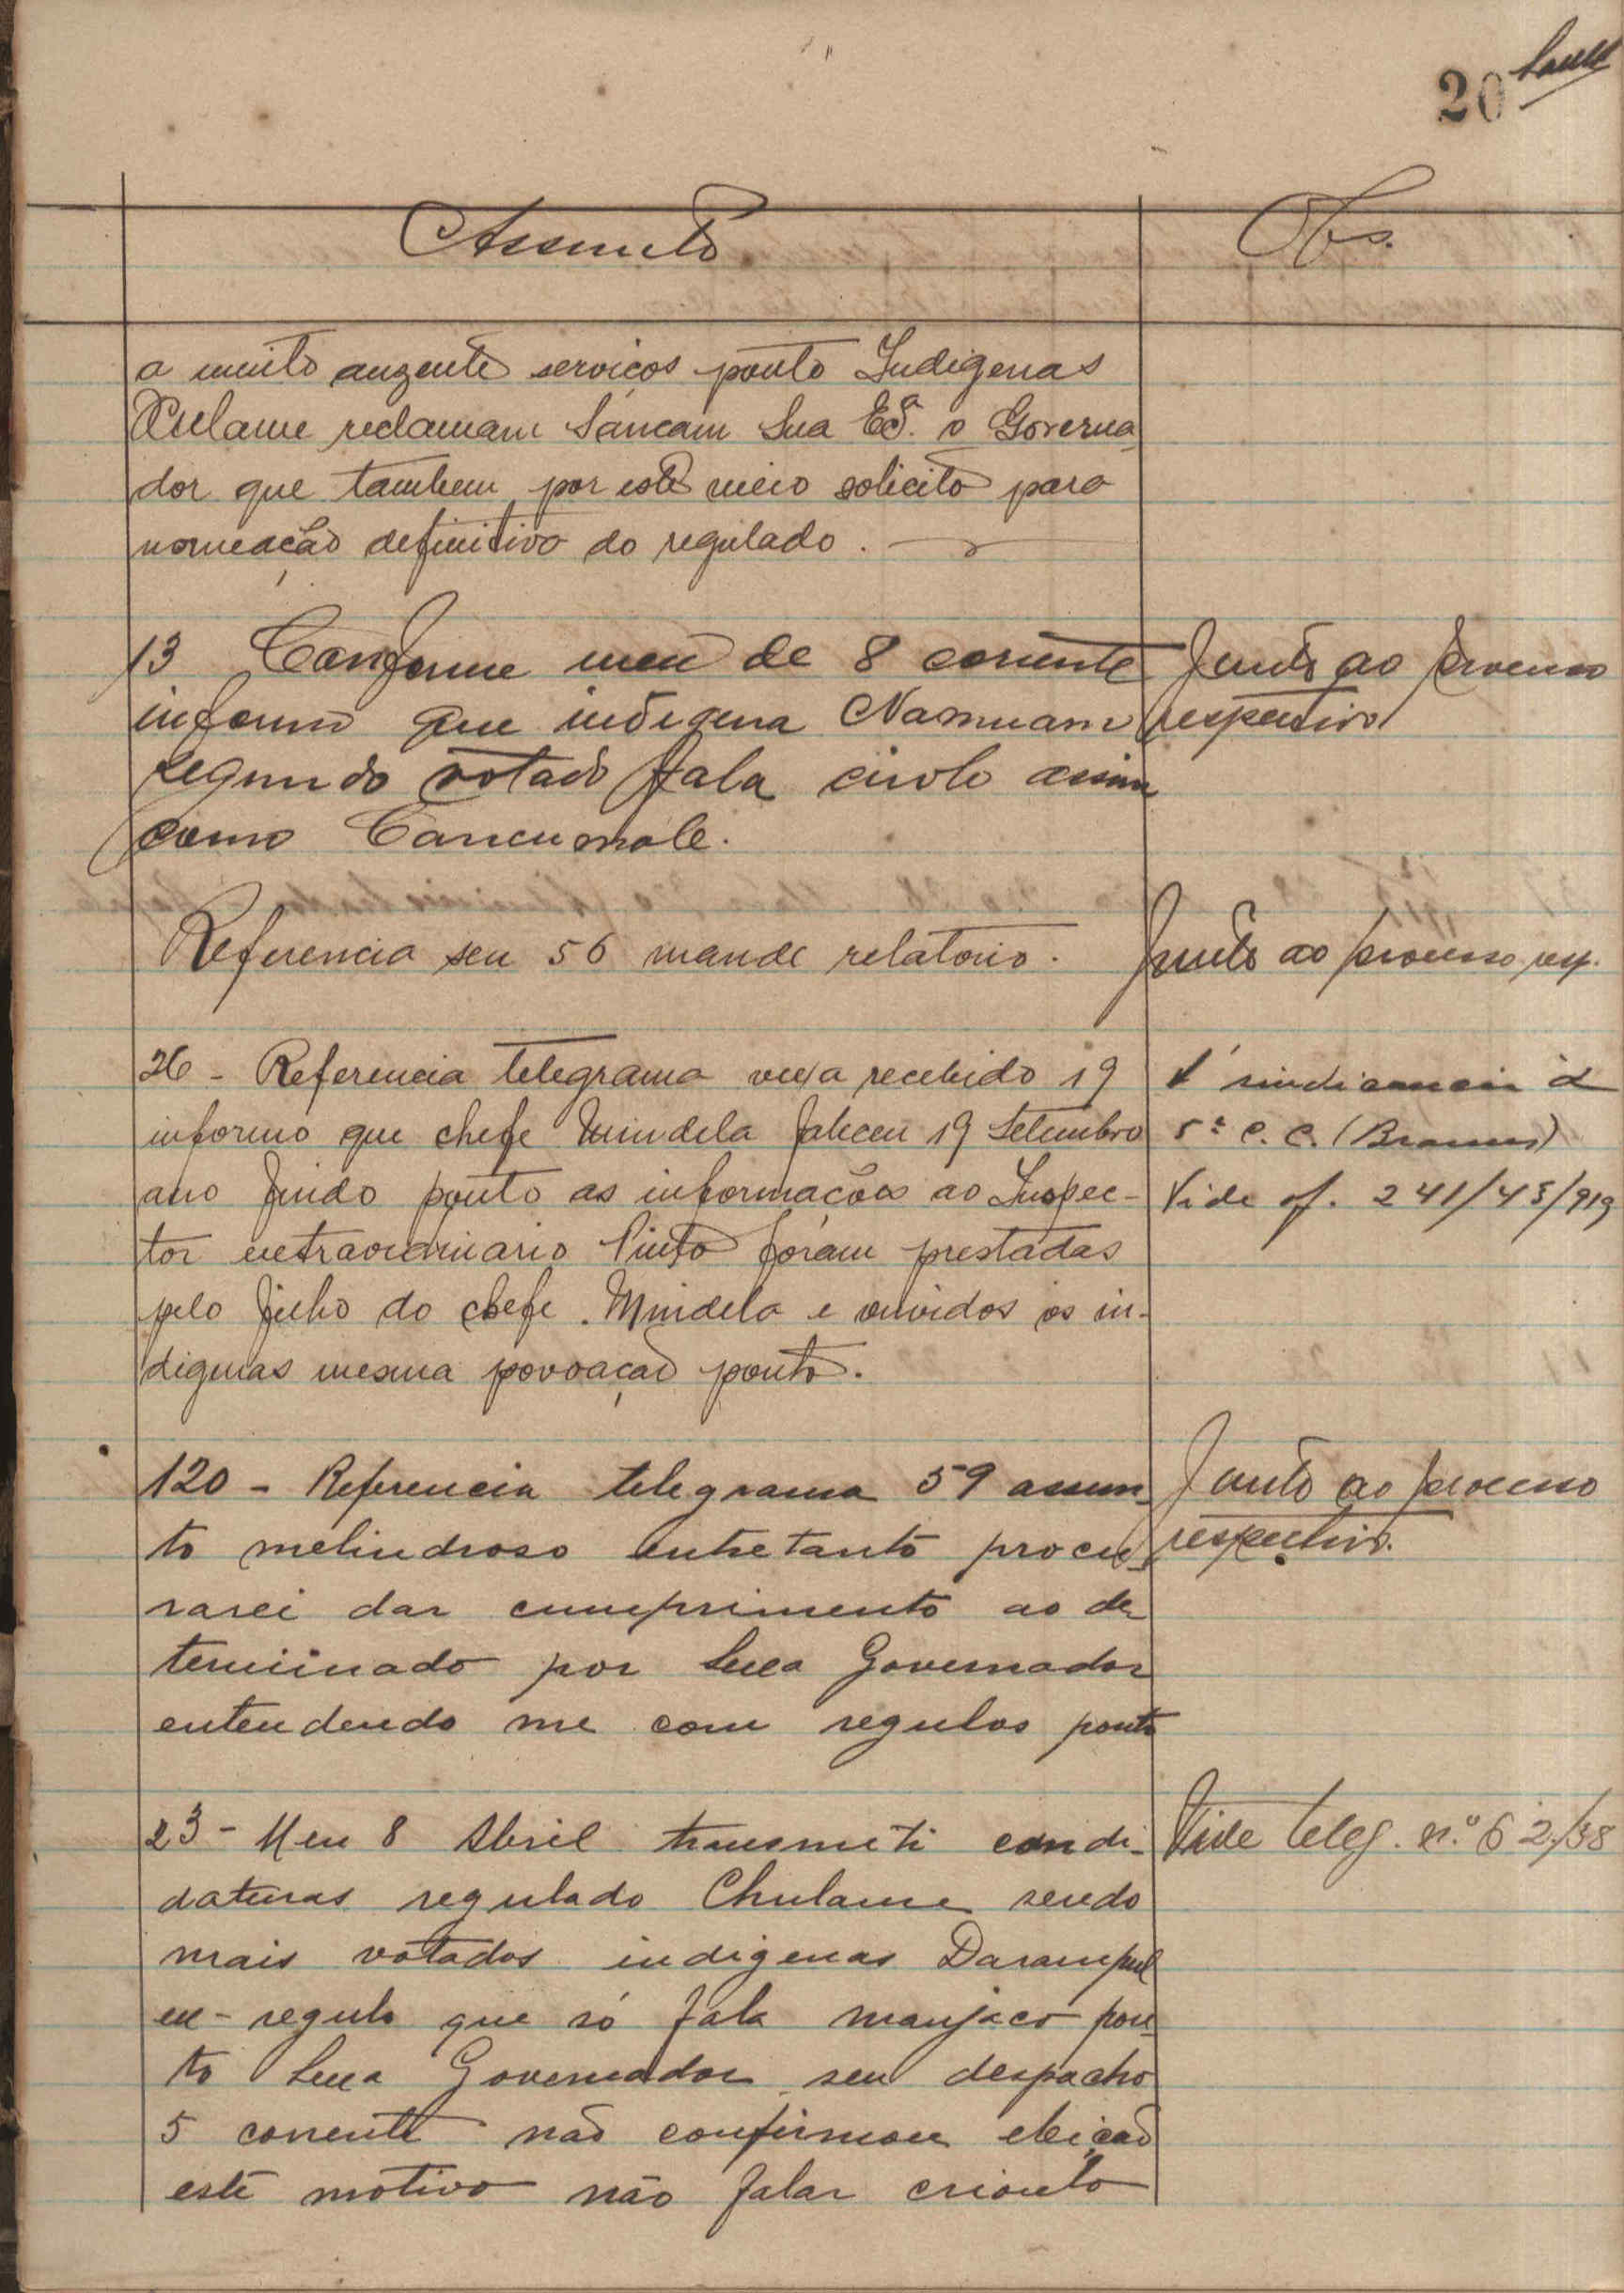 20
Assunto
Obs.
a muito auzente serviços ponto Indigenas
Chulame reclamam Sancam Sua Ex.ª o Governa
dor que tambem por este meio solicito para
nomeação definitiva do regulado.
13 Conforme meu de 8 corrente
Junto ao processo
informo que indigena Namuam
respectivo
segundo votado fala creolo assim
como Cancumole.
Referencia seu 56 mande relatorio.
Junto ao processo resp.
26 - Referencia telegrama vexa recebido 19
sindicancia á
informo que chefe Mindela faleceu 19 Setembro
5ª C. C.
ano findo ponto as informações ao Inspec-
Vide of. 241/43/919
tor extraordinario Pinto fóram prestadas
pelo filho do chefe Mindela e ouvidos os in-
digenas mesma povoação ponto.
120 - Referencia telegrama 59 assum-
Junto ao processo
to melindroso entretanto procu-
respectivo.
rarei dar cumprimento ao de
terminado por Sexa Governador
entendendo me com regulos ponto
23 - Meu 8 Abril transmiti candi-
Vide teleg. n.º 62/38
daturas regulado Chulame sendo
mais votados indigenas Darampul
ex-regulo que só fala manjaco pon-
to Sexa Governador seu despacho
5 corrente não confirmou eleição
este motivo não falar crioulo